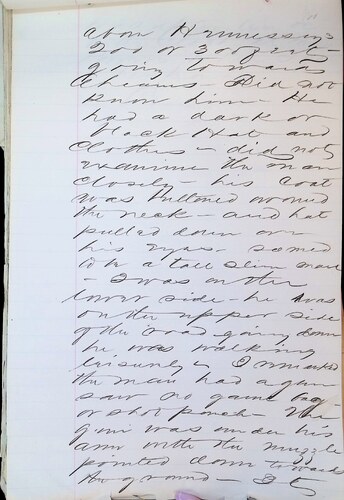 above Hennessy's
200 or 300 feet -
going towards
Cheams Did not
know him - He
had a dark or
black Hat and
Clothes - did not
examine the man
closely - his coat
was buttoned around
the neck - and hat
pulled down over
his eyes - seemed
to be a tall slim man
- I was on the
lower side - he was
on the upper side
of the road going down
he was walking
leisurely - I remarked
the man had a gun
saw no game bag
or shot pouch - The
gun was under his
arm with the muzzle
pointed down towards
the ground -